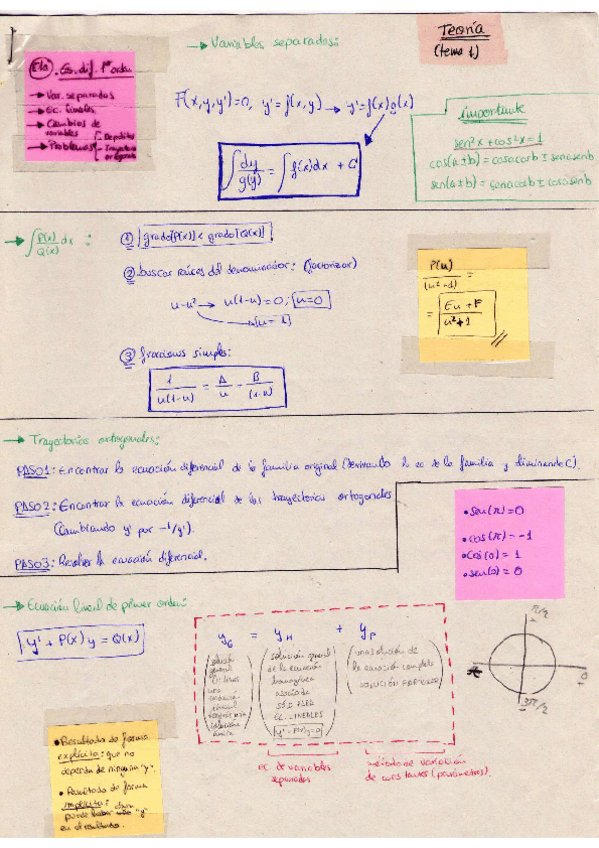 Teoría
(tema 1)
E1a. Ec. dif. 1er orden
→ Var. separadas
→ Ec. lineales
→ Cambios de variables
→ Problemas - Depósitos
- Trayectorias ortogonales
→ Variables separadas:
F(x,y,y')=0, y'=f(x,y) → y'=f(x)g(x)
∫ dy/g(y) = ∫ f(x)dx + C
importante
sen²x + cos²x = 1
cos(a±b) = cosacosb ± senasenb
sen(a±b) = senacosb ± cosasenb
→ ∫ P(x)/Q(x) dx :
① grado[P(x)] < grado[Q(x)]
② buscar raíces del denominador: (factorizar)
u-u² → u(1-u)=0; u=0
u=1
③ fracciones simples:
1/u(1-u) = A/u - B/(1-u)
P(u)/(u²+1) =
= Eu+F/u²+1
→ Trayectorias ortogonales:
PASO1: Encontrar la ecuación diferencial de la familia original (Derivando la ec de la familia y eliminando C).
PASO2: Encontrar la ecuación diferencial de las trayectorias ortogonales
(Cambiando y' por -1/y').
PASO3: Resolver la ecuación diferencial.
• sen(π)=0
• cos(π) = -1
• cos(0) = 1
• sen(0) = 0
→ Ecuación lineal de primer orden:
y' + P(x)y = Q(x)
yG = yH + yP
(solución general
de la ecuación
homogénea
asociada
SÓLO PARA
EC. LINEALES
y'+P(x)y=0)
(una solución de
la ecuación completa
SOLUCIÓN PARTICULAR)
ec. de variables
separadas
método de variación
de constantes (parámetros).
π/2
0
3π/2
• Resultado de forma
explícita: que no
dependa de ninguna "y".
• Resultado de forma
implícita:
puede haber una "y"
en el resultado.